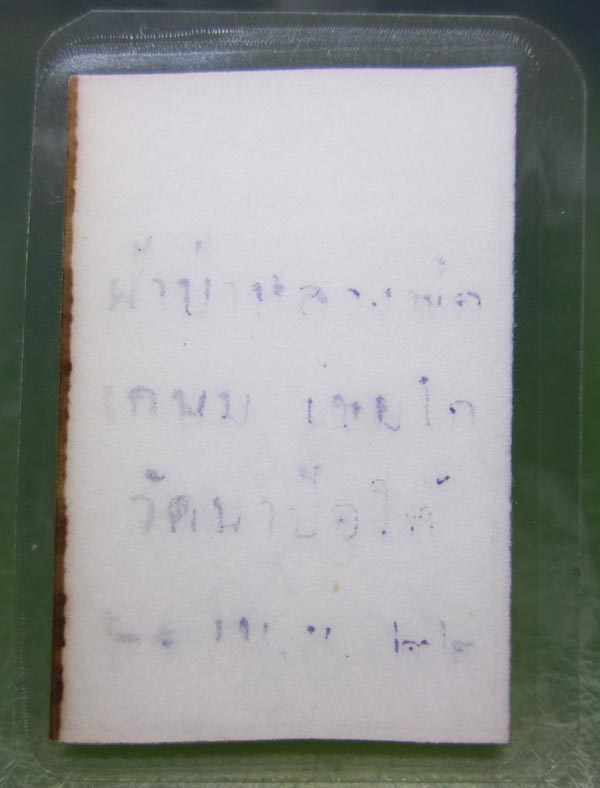 ผ้าป่าหลวงพ่อ
เกษม เขมโก
วัดนาป้อใต้
เม.ย. ๒๒